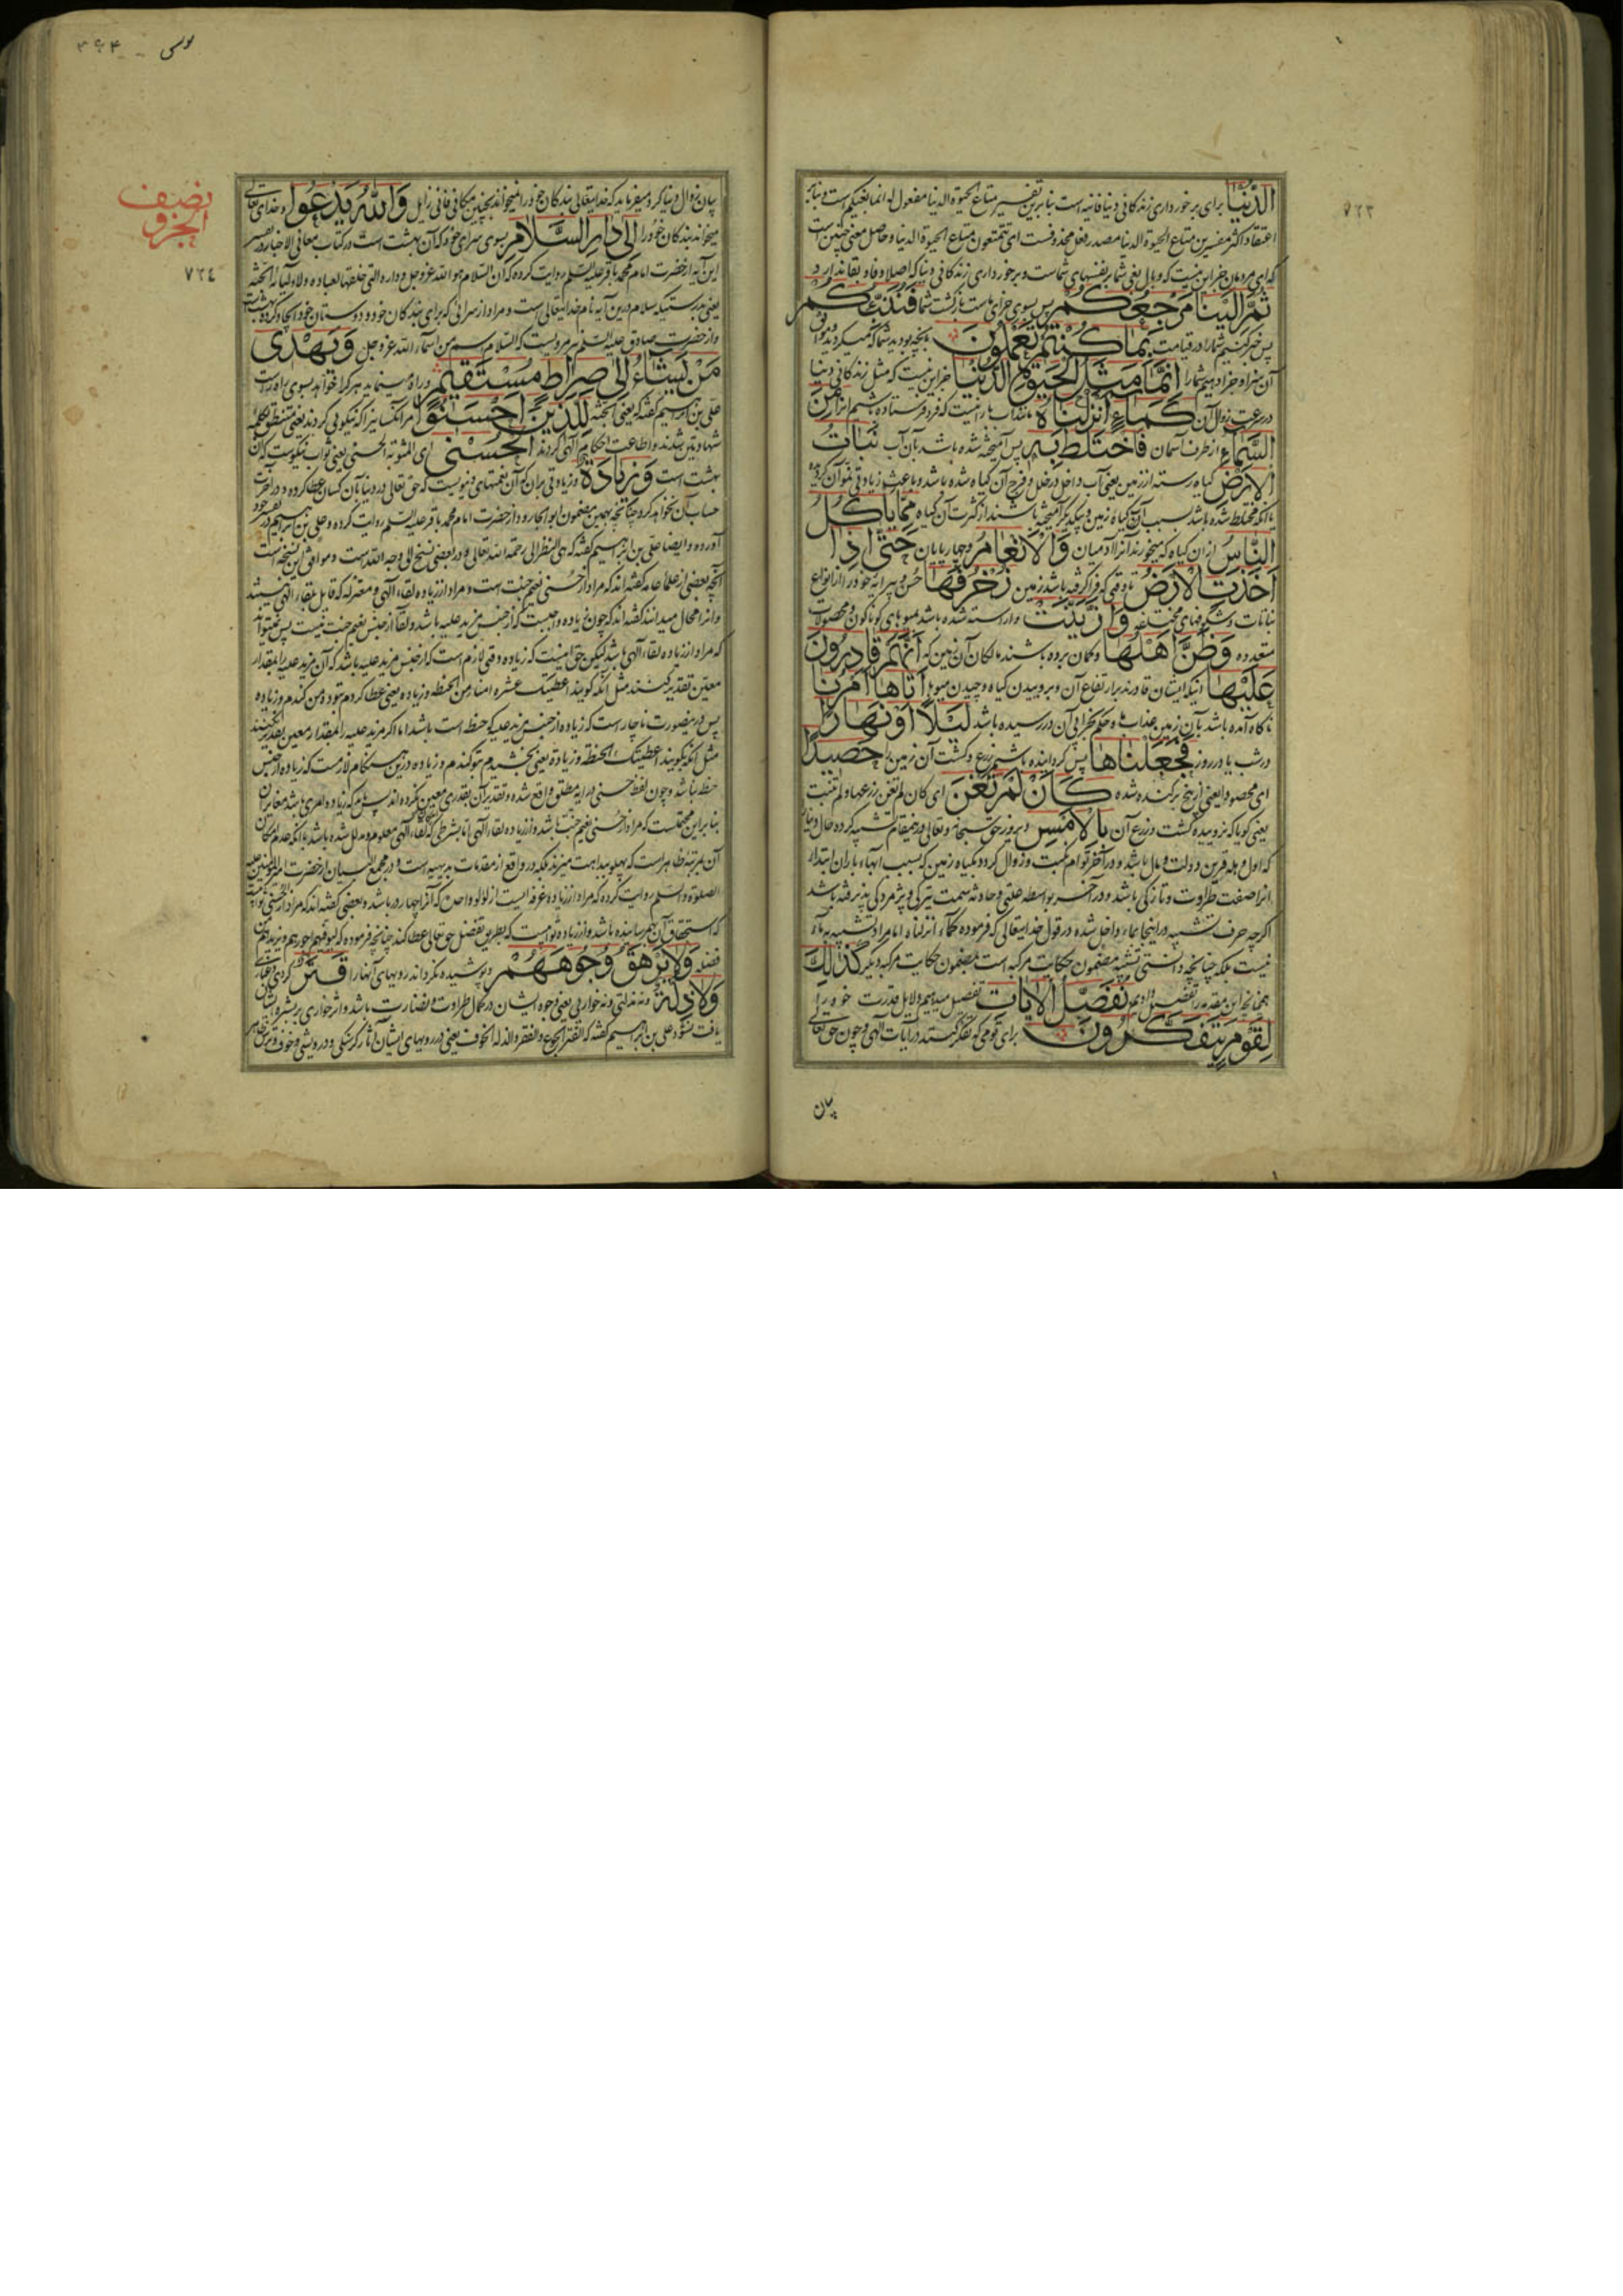 ٧٢٣
الدُّنْيَا برای برخورداری زندکانی دنیا فانیه است بنابرین تفسیر متاع الحیوة الدنیا مفعول له انما بغیکم است و بنابر
اعتقاد اکثر مفسرین متاع الحیوة الدنیا مصدر فعل محذوفست ای تتمتعون متاع الحیوة الدنیا و حاصل معنی چنین است
که ای مردمان جز این نیست که وبال بغی شما بر نفسهای شماست و برخورداری زندکانی دنیا که اصلا وفا و بقا ندارد
ثُمَّ اِلَيْنَا مَرْجِعُكُمْ پس بسوی جزای ماست بازکشت شما فَنُنَبِّئُكُمْ
پس خبر کنیم شما را در قیامت بِمَا كُنْتُمْ تَعْمَلُونَ بانچه بودید شما که میکردید
آن سزا و جزا دهیم شما را اِنَّمَا مَثَلُ الْحَيٰوةِ الدُّنْيَا جز این نیست که مثل زندکانی دنیا
در سرعت زوال آن كَمَاءٍ اَنْزَلْنَاهُ مانند آب بارانیست که فرو فرستاده باشیم انرا مِنَ
السَّمَاءِ از طرف آسمان فَاخْتَلَطَ بِهِ پس آمیخته شده باشد بآن آب نَبَاتُ
الْاَرْضِ کیاه رسته از زمین یعنی آب داخل در خلل و فرج آن کیاه شده باشد و باعث زیادتی نمو آن کردیده
یا انکه مختلط شده باشد بسبب آن آب کیاه زمین و بیکدیکر آمیخته باشند از کثرت آن کیاه مِمَّا يَاْكُلُ
النَّاسُ از ان کیاه که میخورند آنرا آدمیان وَالْاَنْعَامُ و چهارپایان حَتّٰى اِذَا
اَخَذَتِ الْاَرْضُ تا وقتی که فرا کرفته باشد زمین زُخْرُفَهَا حسن و پیرایه خود را از انواع
نباتات و شکوفهای مختلفه وَازَّيَّنَتْ و اراسته شده باشد بمیوه‌های کوناکون و محصولات
متعدده وَظَنَّ اَهْلُهَا و کمان برده باشند مالکان آن زمین که اَنَّهُمْ قَادِرُونَ
عَلَيْهَا انکه ایشان قادرند بر ارتفاع آن و برو بریدن کیاه و چیدن میوها اَتَاهَا اَمْرُنَا
ناکاه آمده باشد بآن زمین عذاب ما و حکم بخرابی آن در رسیده باشد لَيْلًا اَوْ نَهَارًا
در شب یا در روز فَجَعَلْنَاهَا پس کردانیده باشیم زرع و کشت آن زمین را حَصِيدًا
ای محصودا یعنی از بیخ برکنده شده كَاَنْ لَمْ تَغْنَ ای کان لم تغن زرعها و لم تنبت
یعنی کویا که نروییده کشت و زرع آن بِالْاَمْسِ دیروز حق سبحانه و تعالی درینمقام تشبیه کرده حال دنیا
که اول وهله قرین دولت و مال باشد و در آخر توام نکبت و زوال کردد بکیاه زمین که بسبب آبهاء باران ابتدا
انرا صفت طراوت و تازکی باشد و در آخر بواسطه علتی و حادثه سمت تیرکی و پژمردکی پذیرفته باشد
اکرچه حرف تشبیه در اینجا بماء داخل شده در قول خدایتعالی که فرموده کماء انزلناه اما مراد تشبیه بماء
نیست بلکه چنانچه دانستی تشبیه مضمون حکایت مرکبه است بمضمون حکایت مرکبه دیکر كَذٰلِكَ
همچنانچه این مقدمه را تفصیل دادیم نُفَصِّلُ الْاٰيَاتِ تفصیل میدهیم دلایل قدرت خود را
لِقَوْمٍ يَتَفَكَّرُونَ برای قومی که تفکر کنند در آیات الهی و چون حق تعالی
بیان
٧٢٤
نصف
الجزو
بیان زوال دنیا کرد میفرماید که خدایتعالی بندکان خود را نمیخواند بچنین مکانی فانی زایل وَاللّٰهُ يَدْعُوا و خدای تعالی
میخواند بندکان خود را اِلٰى دَارِ السَّلَامِ بسوی سرای خود که آن بهشت است در کتاب معانی الاخبار در تفسیر
این آیه از حضرت امام محمد باقر علیه السلم روایت کرده که ان السلام هو الله عز و جل و داره التی خلقها لعباده و لاولیائه الجنة
یعنی بدرستیکه سلام درین آیه نام خدایتعالی است و مراد از سرائی که برای بندکان خود و دوستان خود ایجاد کرده بهشت
و از حضرت صادق علیه السلم مرویست که السلام اسم من اسماء الله عز و جل وَيَهْدِى
مَنْ يَشَاءُ اِلٰى صِرَاطٍ مُسْتَقِيمٍ و راه مینماید هر کرا خواهد بسوی راه راست
علی بن ابراهیم کفته که یعنی الجنة لِلَّذِينَ اَحْسَنُوا مر آنکسانیرا که نیکویی کردند یعنی متنطق بکلمه
شهادتین شدند و اطاعت احکام الهی کردند الْحُسْنٰى ای المثوبة الحسنی یعنی ثواب نیکوست که آن
بهشت است وَزِيَادَةٌ و زیادتی بران که آن نعمتهای دنیویست که حق تعالی در دنیا بآن کسان عطا کرده و در آخرت
حساب آن نخواهد کرد چنانچه بهمین مضمون ابو الجارود از حضرت امام محمد باقر علیه السلم روایت کرده و علی بن ابراهیم در تفسیر خود
آورده و ایضا علی بن ابراهیم کفته که هی النظر الی رحمة الله تعالی و در بعضی نسخ الی وجه الله است و موافق این نسخه است
آنچه بعضی از علماء عامه کفته اند که مراد از حسنی نعیم جنت است و مراد از زیاده لقاء الهی و معتزله که قایل بلقاء الهی نیستند
و انرا محال میدانند کفته اند که چون زیاده واجبست که از جنس مزید علیه باشد و لقا از جنس نعیم جنت نیست پس نمیتواند
که مراد از زیاده لقاء الهی باشد لیکن حق اینست که زیاده وقتی لازم است که از جنس مزید علیه باشد که آن مزید علیه را بمقدار
معین تقدیر کنند مثل انکه کویند اعطیتک عشرة امناء من الحنطة و زیادة یعنی عطا کردم بتو ده من کندم و زیاده
پس درینصورت ناچار است که زیاده از جنس مزید علیه که حنطه است باشد اما اکر مزید علیه را بمقدار معین تقدیر نکنند
مثل انکه بکویند اعطیتک الحنطة و زیادة یعنی بخشیدم بتو کندم و زیاده درین هنکام لازم نیست که زیاده از جنس
حنطه باشد و چون لفظ حسنی در آیه مطلق واقع شده و تقدیر آن بقدری معین نکرده اند پس زیاده امری باشد مغایر آن
بنابراین محتملست که مراد از حسنی نعیم جنت باشد و از زیاده لقاء الهی اما بشرطی که لقاء الهی معلوم و مدلل شده باشد با انکه عدم امکان
الصلوة و السلم روایت کرده که مراد از زیاده غرفه ایست از لؤلؤ واحد که آنرا چهار در باشد و بعضی کفته اند که مراد از حسنی ثوابیست
که استحقاق آن بهم رسانیده باشد و از زیاده ثوابیست که بطریق تفضل حق تعالی عطا کند چنانچه فرموده که لیوفیهم اجورهم و یزیدهم من
فضله وَلَا يَرْهَقُ وُجُوهَهُمْ و پوشیده نکرداند رویهای آنها را قَتَرٌ کردی و غباری
وَلَا ذِلَّةٌ و نه مذلتی و نه خواری یعنی وجوه ایشان در کمال طراوت و نضارت باشد و اثر خواری بر بشره ایشان
یافت نشود علی بن ابراهیم کفته که القتر الجوع و الفقر و الذلة الخوف یعنی در رویهای ایشان آثار کرسنکی و درویشی و خوف و ترس